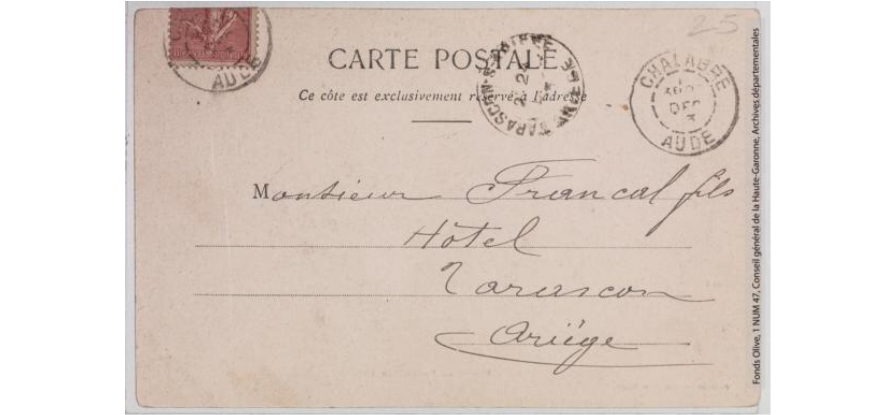 25
CARTE POSTALE
Ce côte est exclusivement réservé à l'adresse
AUDE
CHALABRE
DEC
3
AUDE
Monsieur Francal fils
Hôtel
Tarascon
Ariége
Fonds Olive, 1 NUM 47, Conseil général de la Haute-Garonne, Archives départementales